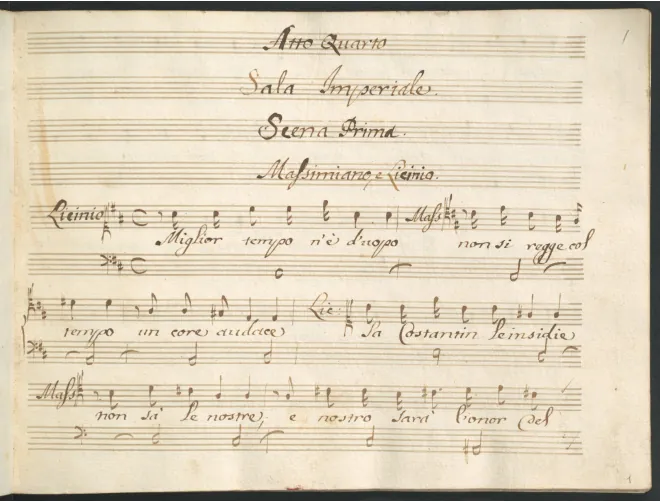 1
Atto Quarto
Sala Imperiale.
Scena Prima.
Massimiano, e Licinio.
Licinio Mass
Miglior tempo n'è d'uopo non si regge col
Lic:
tempo un core audace Sa Costantin le insidie
Mass
non sà le nostre, e nostro sarà l'onor del
1